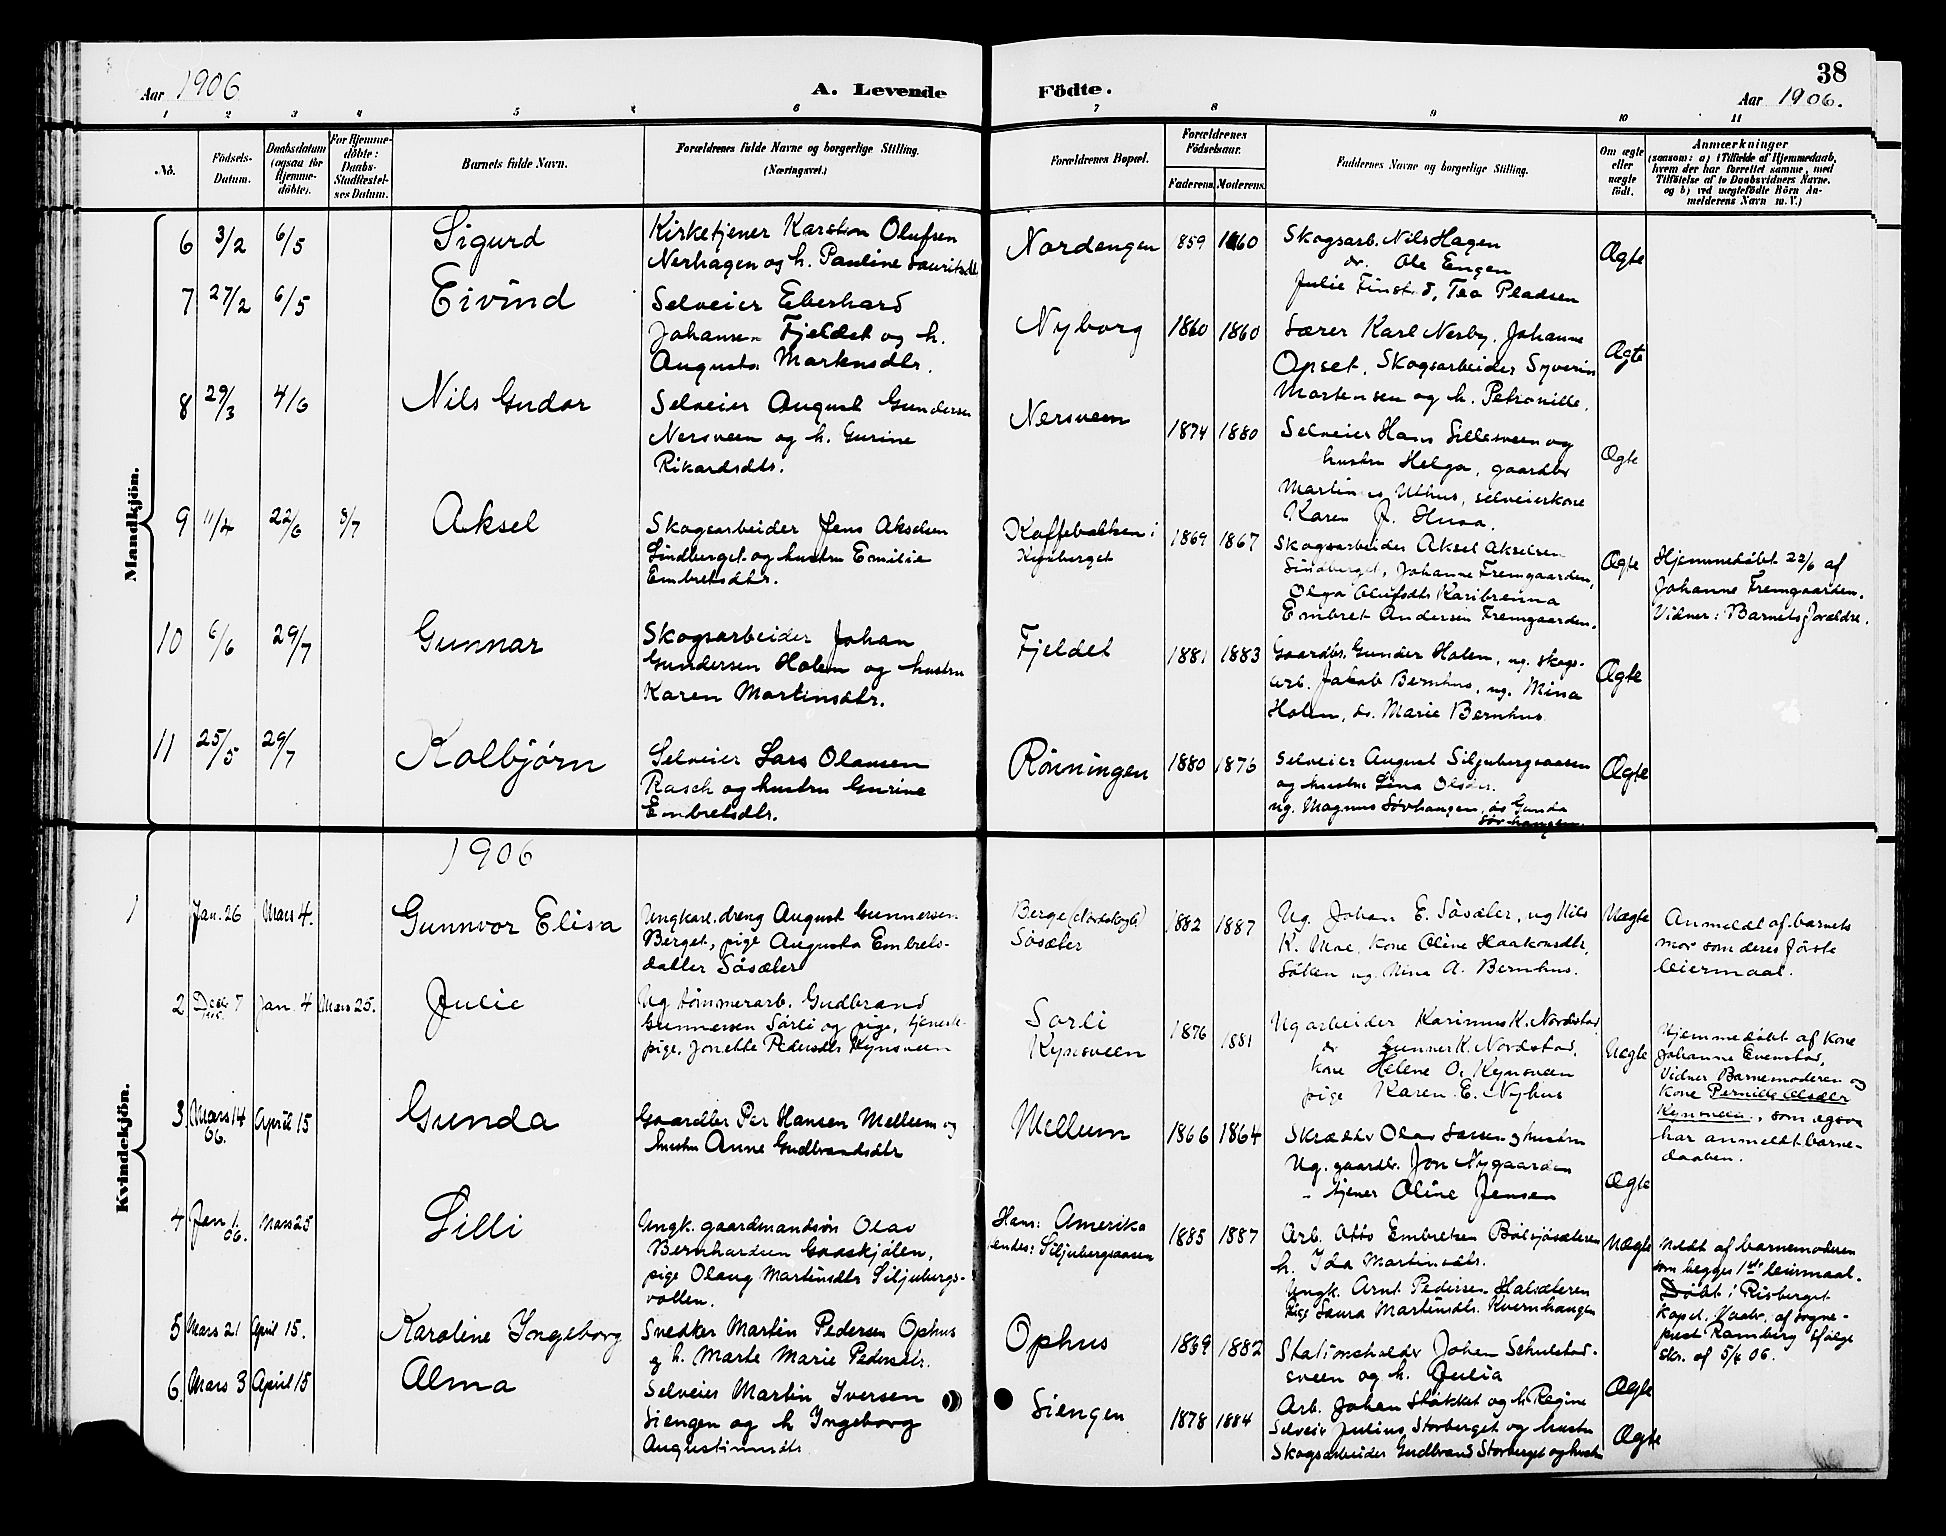 38
Aar 1906
A. Levende Födte.
Aar 1906.
1 2 3 4 5 6 7 8 9 10 11
No.
Födsels-
Datum.
Daabsdatum
(ogsaa för
Hjemme-
döbte).
For Hjemme-
döbte:
Daabs-
Stadfæstel-
ses Datum.
Barnets fulde Navn.
Forældrenes fulde Navne og borgerlige Stilling.
(Næringsvei.)
Forældrenes Bopæl.
Forældrenes
Födselsaar.
Faderens. Moderens.
Faddernes Navne og borgerlige Stilling.
Om ægte
eller
uægte
født.
Anmærkninger
(saasom: a) i Tilfælde af Hjemmedaab,
hvem der har forrettet samme, med
Tilföielse af to Daabsvidners Navne,
og b) ved uægtefödte Börn An-
melderens Navn m. V.)
Mandkjön.
6 3/2 6/5 Sigurd
Kirketjener Karsten Olufsen
Nerhagen og h. Pauline
Nordengen 859 1860
Skogsarb. Nils Hagen
do. Ole Engen
Julie Tea Pladsen
Ægte
7 27/2 6/5 Eivind
Selveier Eberhard
Johansen Fjeldet og h.
Augusta Martensdtr.
Nyborg 1860 1860
Lærer Karl Nerby, Johanne
Opset, Skogsarbeider Syverin
Martensen og h. Petronille.
Ægte
8 29/3 4/6 Nils Gudor
Selveier August Gundersen
Nersveen og h. Gurine
Rikardsdtr.
Nersveen 1874 1880
Selveier Hans Lillesveen og
hustru Helga, gaardbr
Martinus Uthus, selveierkone
Karen J. Husa.
Ægte
9 11/4 22/6 8/7 Aksel
Skogsarbeider Jens Akselsen
Lindberget og hustru Emilie
Embretsdtr.
Kaffebakken i
Kynberget
1869 1867
Skogsarbeider Aksel Akselsen
Lindberget, Johanne Fremgaarden,
Olga Olufsdtr Karibrenna
Embret Andersen Fremgaarden.
Ægte
Hjemmedöbt 22/6 af
Johanne Fremgaarden.
Vidner: Barnets forældre.
10 6/6 29/7 Gunnar
Skogsarbeider Johan
Gundersen Holen og hustru
Karen Martinsdtr.
Fjeldet 1881 1883
Gaardbr. Gunder Holen, ug. skogs-
arb. Jakob Bernhus, ug. Mina
Holen, ds. Marie Bernhus
Ægte
11 25/5 29/7 Kolbjørn
Selveier Lars Olausen
Rasch og hustru Gurine
Embretsdtr.
Rönningen 1880 1876
Selveier August Siljubergsaasen
og hustru Lina Olsdtr.
ug. Magnus Sörhaugen, ds Gunda
Sörhaugen.
Ægte
Kvindekjön.
1906
1 Jan. 26 Mars 4. Gunnvor Elisa
Ungkarl, dreng August Gunnersen
Berget, pige Augusta Embrets-
datter Söseter
Berge (Nordskogb)
Söseter
1882 1887
Ug. Johan E. Söseter, ug Nils
K. Moe, kone Oline Haakonsdtr,
ug. Nina A. Bernhus.
Uægte
Anmeldt af barnets
mor som deres første
leiermaal.
2 Decbr 7 1905. Jan. 4 Mars 25. Julie
Ug tömmerarb. Gudbrand
Gunnersen Sörli og pige, tjeneste-
pige, Jonette Pedersdtr Kynsveen
Sorli
Kynsveen
1876 1881
Ug arbeider Karinus K. Nordstad
do Gunner K. Nordstad.
Kone Helene O. Kynsveen
pige Karen E. Nyhus
Uægte
Hjemmedöbt af kone
Johanne Evenstad,
Vidner Barnemoderen og
Kone Pernille Olsdtr
Kynsveen, som ogsaa
har anmeldt barne-
daaben.
3 Mars 14 06. April 15 Gunda
Gaardbr Per Hansen Mellem og
hustru Anne Gudbrandsdtr
Mellum 1866 1864
Skrædder Olav Larsen og hustru
Ug. gaardbr. Jon Nygaarden
- tjener Oline Jensen
Ægte
4 Jan 1. 06. Mars 25 Lilli
Ungk. gaardmandsön Olav
Bernhardsen Gaaskjölen,
pige Olaug Martinsdtr Siljubergs-
vollen.
Hans: Amerika
endes: Siljubergsaasen
1885 1887
Arb. Otto Embretsen Bölsjösæteren
h. Ida Martinsdtr.
Ungk. Arnt Pedersen Halsæteren
Pige Laura Martinsdtr. Kvernhaugen
Uægte
Meldt af barnemoderen
som begges 1ste leiermaal.
Döbt i Risberget
kapel, Vaaler, af sogne-
prest Ramberg ifølge
skr. af 5/4 06.
5 Mars 21 April 15. Karoline Ingeborg
Snedker Martin Pedersen Ophus
og h. Marte Marie Pedersdtr.
Ophus 1869 1882
Stationsholder Johan Schulstad-
sveen og h. Julia
Ægte
6. Mars 3 April 15 Alma
Selveier Martin Iversen
Liengen og h Ingeborg
Augustinusdtr
Liengen 1878 1884
Arb. Johan Stökket og h. Regine
Selveier Julius Storberget og hustru
Skogsarbeider Gudbrand Storberget og hustru
Ægte